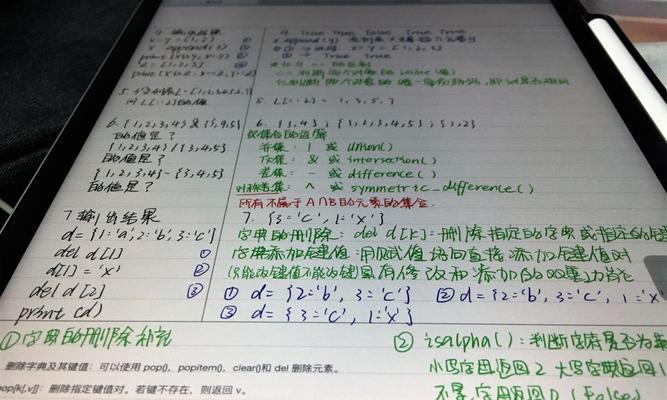 4. 输出结果
x=y=[1,2]
x.append(1)
print(x is y, x==y)
z=[1,2,3]
print(x is z, x==z, y==z)
5.
问L[::2]的值
6. {1,2,3,4} & {3,4,5}
的值是?
{1,2,3,4} | {3,4,5}
的值是?
{1,2,3,4}-{3,4,5}
的值是?
7 输出结果
d={1:'a',2:'b',3:'c'}
del d[1] ①
d[1]='x' ②
del d[2] ③
print(d)
4. True True False True True
x.append(y)
x=y=[1,2,1]
5. L[::2]=1,3,5,7
6. {3,4}; {1,2,3,4,5}; {1,2}
集合的运算
并集: | 或 union()
交集: & 或 intersection()
差集: - 或 difference()
对称差集: ^ 或 symmetric-difference()
所有不属于A∩B的元素的集合.
7. {3='c',1='x'}
字典的删除: del d[k]:删除指定的字典或指定的键值
字典添加键值:用赋值语句直接添加键值对
只能改键值不能改键具有修改和添加的双重功能
① d={2='b',3='c'} ② d={2='b',3='c',1='x'
③ d={3='c',1='x'
①字典的删除补充
删除字典及其键值:可以使用 pop(), popitem(), clear()和 del 删除元素。
pop(k[,v]):删除指定键值对。若键不存在,则返回 v。
② isalpha():判断字符是否为
小写字母返回2 大写字母返回1
不是字母返回0 (False)